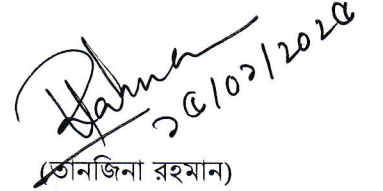 Rahman
১৫/০১/২০২৫
(তানজিনা রহমান)